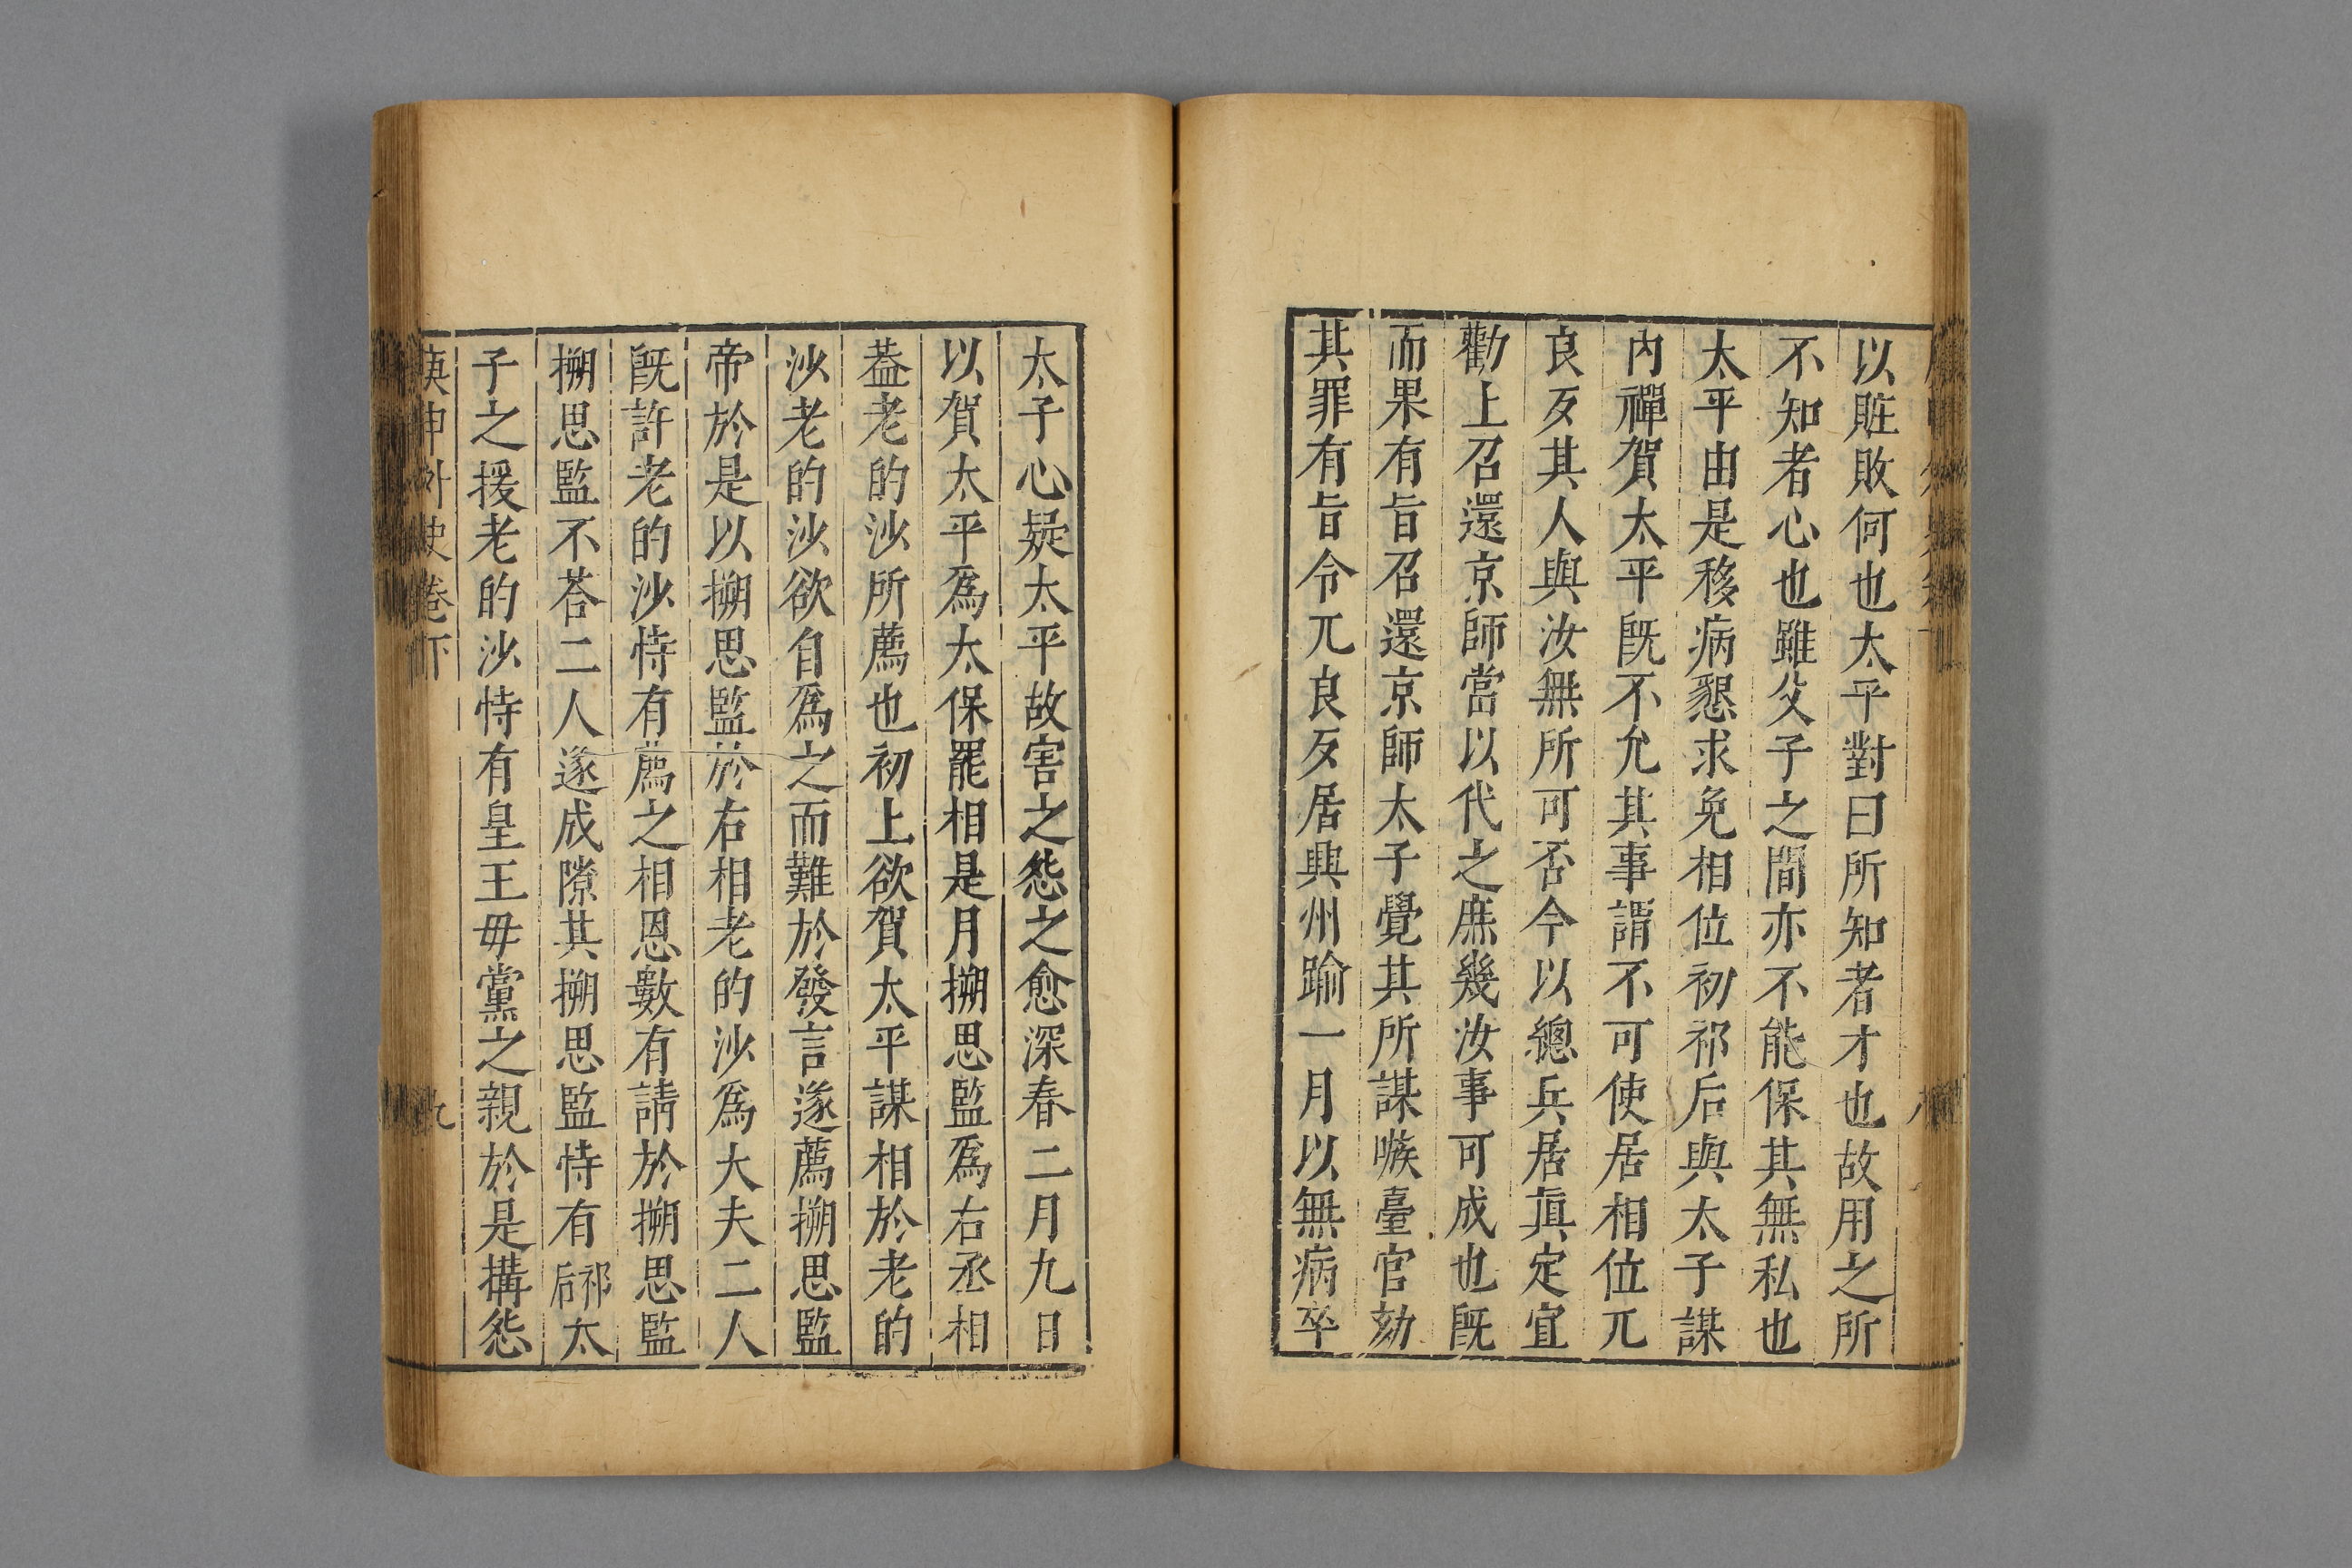 以賍敗何也太平對曰所知者才也故用之所
不知者心也雖父子之間亦不能保其無私也
太平由是移病懇求免相位初祁后與太子謀
内禪賀太平既不允其事謂不可使居相位兀
良歹其人與汝無所可否今以總兵居眞定宜
勸上召還京師當以代之庶幾汝事可成也既
而果有旨召還京師太子覺其所謀嗾臺官劾
其罪有旨令兀良歹居興州踰一月以無病卒
太子心疑太平故害之怨之愈深春二月九日
以賀太平爲太保罷相是月搠思監爲右丞相
葢老的沙所薦也初上欲賀太平謀相於老的
沙老的沙欲自爲之而難於發言遂薦搠思監
帝於是以搠思監於右相老的沙爲大夫二人
既許老的沙恃有薦之相恩數有請於搠思監
搠思監不荅二人遂成隙其搠思監恃有祁后太
子之援老的沙恃有皇王毋黨之親於是搆怨
庚申外史卷下
九